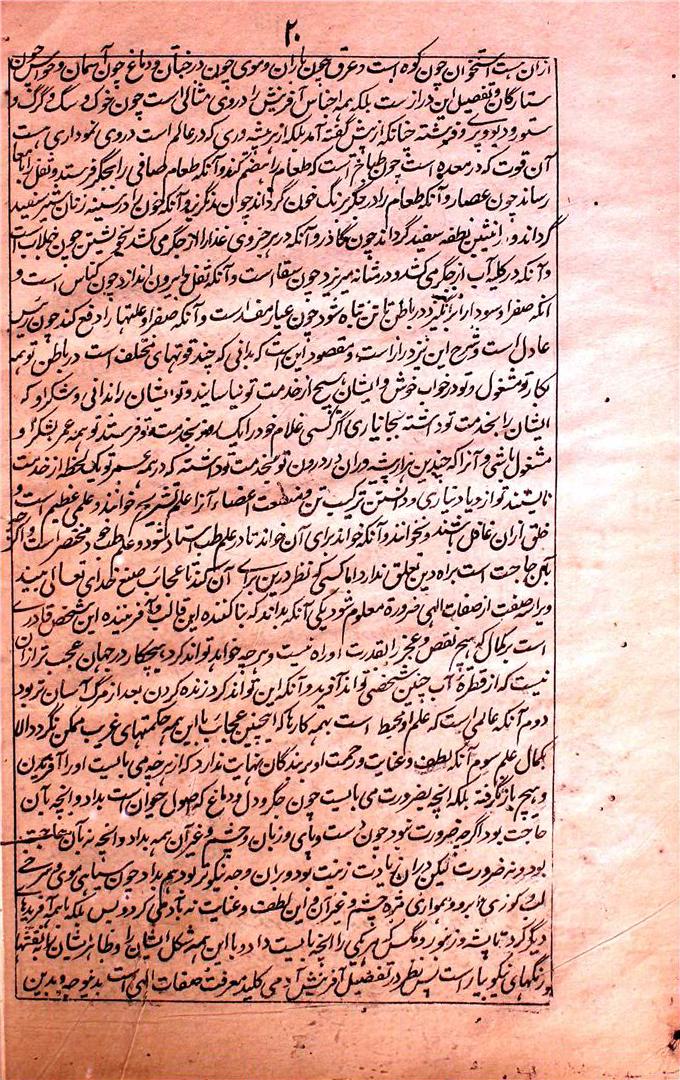 ۲۰
ازان ست استخوان چون کوه است و عرق چون باران و موی چون درختان و دماغ چون آسمان و حواس چون
ستارگان و تفصیل این دراز ست بلکه همه اجناس آفرینش را در وی مثالی است چون خوک و سگ و گرگ و
ستور و دیو و پری و فرشته چنانکه از پیش گفته آمد بلکه از هر پیشه وری که در عالم است در وی نموداری هست
آن قوت که در معده است چون طباخ است که طعام را هضم کند و آنکه طعام صافی را بجگر فرستد و ثفل را بامعا
رساند چون عصار و آنکه طعام را در جگر برنگ خون گرداند چون رنگرز و آنکه خون را در سینه زنان شیر سفید
گرداند و در انثیین نطفه سفید گرداند چون گاذر و آنکه در هر جزوی غذا را از جگر می کشد بخویشتن چون جلاب است
و آنکه در کلیه آب از جگر می کشد و در مثانه میریزد چون سقا است و آنکه ثفل را بیرون اندازد چون کناس است و
آنکه صفرا و سودا را برانگیزد در باطن تا تن تباه شود چون عیار مفسد است و آنکه صفرا و علتها را دفع کند چون رئیس
عادل است و شرح این نیز دراز است و مقصود این است که بدانی که چند قوتهای مختلف است در باطن تو همه
بکار تو مشغول و تو در خواب خوش و ایشان هیچ از خدمت تو نیاسایند و تو ایشان را ندانی و شکر او که
ایشان را بخدمت تو داشته بجا نیاری اگر کسی غلام خود را یک روز بخدمت تو فرستد تو همه عمر بشکر او
مشغول باشی و آنرا که چندین هزار پیشه وران در درون تو بخدمت تو داشته که در همه عمر تو یک لحظه از خدمت
نایستند تو از و یاد نیاری و دانستن ترکیب تن و منفعت اعضاء آنرا علم تشریح خوانند و علمی عظیم است و
خلق ازان غافل باشند و نخوانند و آنکه خواند برای آن خواند تا در علم طب استاد شود و علم طب خود مختصر است و اگرچه
بآن حاجت است براه دین تعلق ندارد اما کسی که نظر درین برای آن کند تا عجائب صنع خدای تعالی بیند
ویرا سه صفت از صفات الهی ضرورة معلوم شود یکی آنکه بداند که بنا کننده این قالب و آفریننده این شخص قادری
است بر کمال که هیچ نقص و عجز را بقدرت او راه نیست و هر چه خواهد تواند کرد و هیچ کار در جهان عجب تر ازان
نیست که از قطرهٔ آب چنین شخصی تواند آفرید و آنکه این تواند کرد زنده کردن بعد از مرگ آسان تر بود
دوم آنکه عالمی است که علم او محیط است بهمه کارها که اینچنین عجائب با این همه حکمتهای غریب ممکن نگردد الا
بکمال علم سوم آنکه لطف و عنایت و رحمت او بر بندگان نهایت ندارد که از هر چه می بایست او را آفریدن
و هیچ باز نگرفته بلکه آنچه بضرورت می بایست چون جگر و دل و دماغ که اصول حیوان است بداد و آنچه بآن
حاجت بود اگر چه ضرورت نبود چون دست و پای و زبان و چشم و غیر آن همه بداد و آنچه نه بآن حاجت
بود و نه ضرورت لیکن دران زیادت زینت بود و بران وجه نیکوتر بود هم بداد چون سیاهی موی و سرخی
لب و کوزی ابرو و همواری مژه چشم و غیر آن و این لطف و عنایت نه بآدمی کرد و بس بلکه با همه آفریدهای
دیگر کرد تا پشه و زنبور و مگس که هر یکی را آنچه بایست داد و با این همه شکل ایشان را و ظاهر ایشان را بنقشها
و رنگهای نیکو بیاراست پس نظر در تفصیل آفرینش آدمی کلید معرفت صفات الهی است بدین وجه و بدین